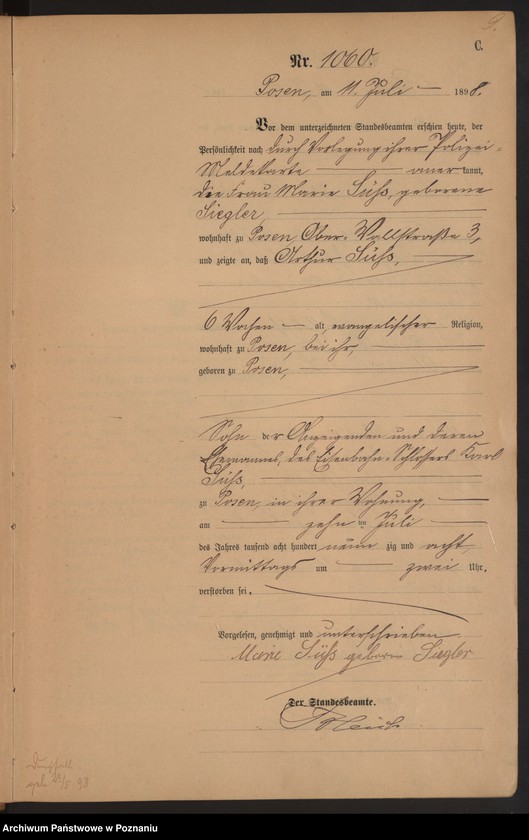 9.
C.
Nr. 1060.
Posen, am 11. Juli 1898.
Vor dem unterzeichneten Standesbeamten erschien heute, der
Persönlichkeit nach durch Vorlegung ihrer Polizei-
Meldekarte anerkannt,
die Frau Marie Süß, geborene
Siegler,
wohnhaft zu Posen Ober-Wallstraße 3,
und zeigte an, daß Arthur Süß,
6 Wochen alt, evangelischer Religion,
wohnhaft zu Posen, bei ihr,
geboren zu Posen,
Sohn der Anzeigenden und deren
Ehemannes, des Eisenbahn-Schlossers Karl
Süß,
zu Posen, in ihrer Wohnung,
am zehnten Juli
des Jahres tausend acht hundert neunzig und acht
Vormittags um zwei Uhr,
verstorben sei.
Vorgelesen, genehmigt und unterschrieben
Marie Süß geborene Siegler
Der Standesbeamte.
geb. /5 98
Archiwum Państwowe w Poznaniu